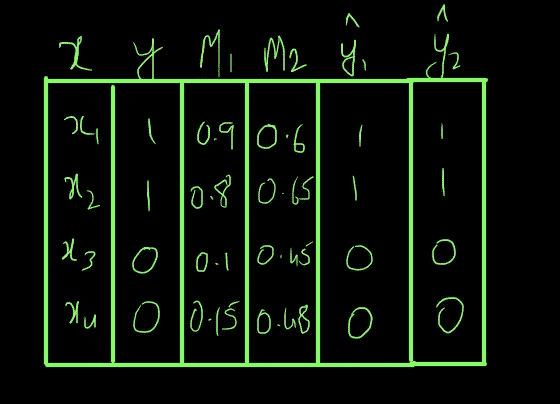 x y M₁ M₂ ŷ₁ ŷ₂
x₁ 1 0.9 0.6 1 1
x₂ 1 0.8 0.65 1 1
x₃ 0 0.1 0.45 0 0
x₄ 0 0.15 0.48 0 0